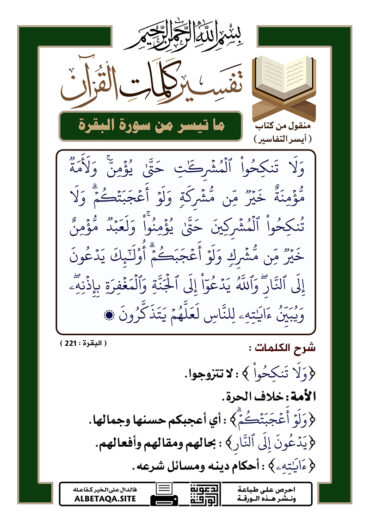 بِسْمِ اللَّهِ الرَّحْمَنِ الرَّحِيمِ
تفسير كلمات القرآن
ما تيسر من سورة البقرة
منقول من كتاب
( أيسر التفاسير )
وَلَا تَنكِحُوا۟ ٱلْمُشْرِكَٰتِ حَتَّىٰ يُؤْمِنَّ ۚ وَلَأَمَةٌ
مُّؤْمِنَةٌ خَيْرٌ مِّن مُّشْرِكَةٍ وَلَوْ أَعْجَبَتْكُمْ ۗ وَلَا
تُنكِحُوا۟ ٱلْمُشْرِكِينَ حَتَّىٰ يُؤْمِنُوا۟ ۚ وَلَعَبْدٌ مُّؤْمِنٌ
خَيْرٌ مِّن مُّشْرِكٍ وَلَوْ أَعْجَبَكُمْ ۗ أُو۟لَٰٓئِكَ يَدْعُونَ
إِلَى ٱلنَّارِ ۖ وَٱللَّهُ يَدْعُوٓا۟ إِلَى ٱلْجَنَّةِ وَٱلْمَغْفِرَةِ بِإِذْنِهِۦ ۖ
وَيُبَيِّنُ ءَايَٰتِهِۦ لِلنَّاسِ لَعَلَّهُمْ يَتَذَكَّرُونَ
( البقرة : 221 )
شرح الكلمات :
﴿وَلَا تَنكِحُوا۟﴾ : لا تتزوجوا.
الأمة : خلاف الحرة.
﴿وَلَوْ أَعْجَبَتْكُمْ ۗ﴾ : أي أعجبكم حسنها وجمالها.
﴿يَدْعُونَ إِلَى ٱلنَّارِ﴾ : بحالهم ومقالهم وأفعالهم.
﴿ءَايَٰتِهِۦ﴾ : أحكام دينه ومسائل شرعه.
احرص على طباعة
ونشر هذه الورقة
الدعوية
الورقة
فالدال على الخير كفاعله
ALBETAQA.SITE